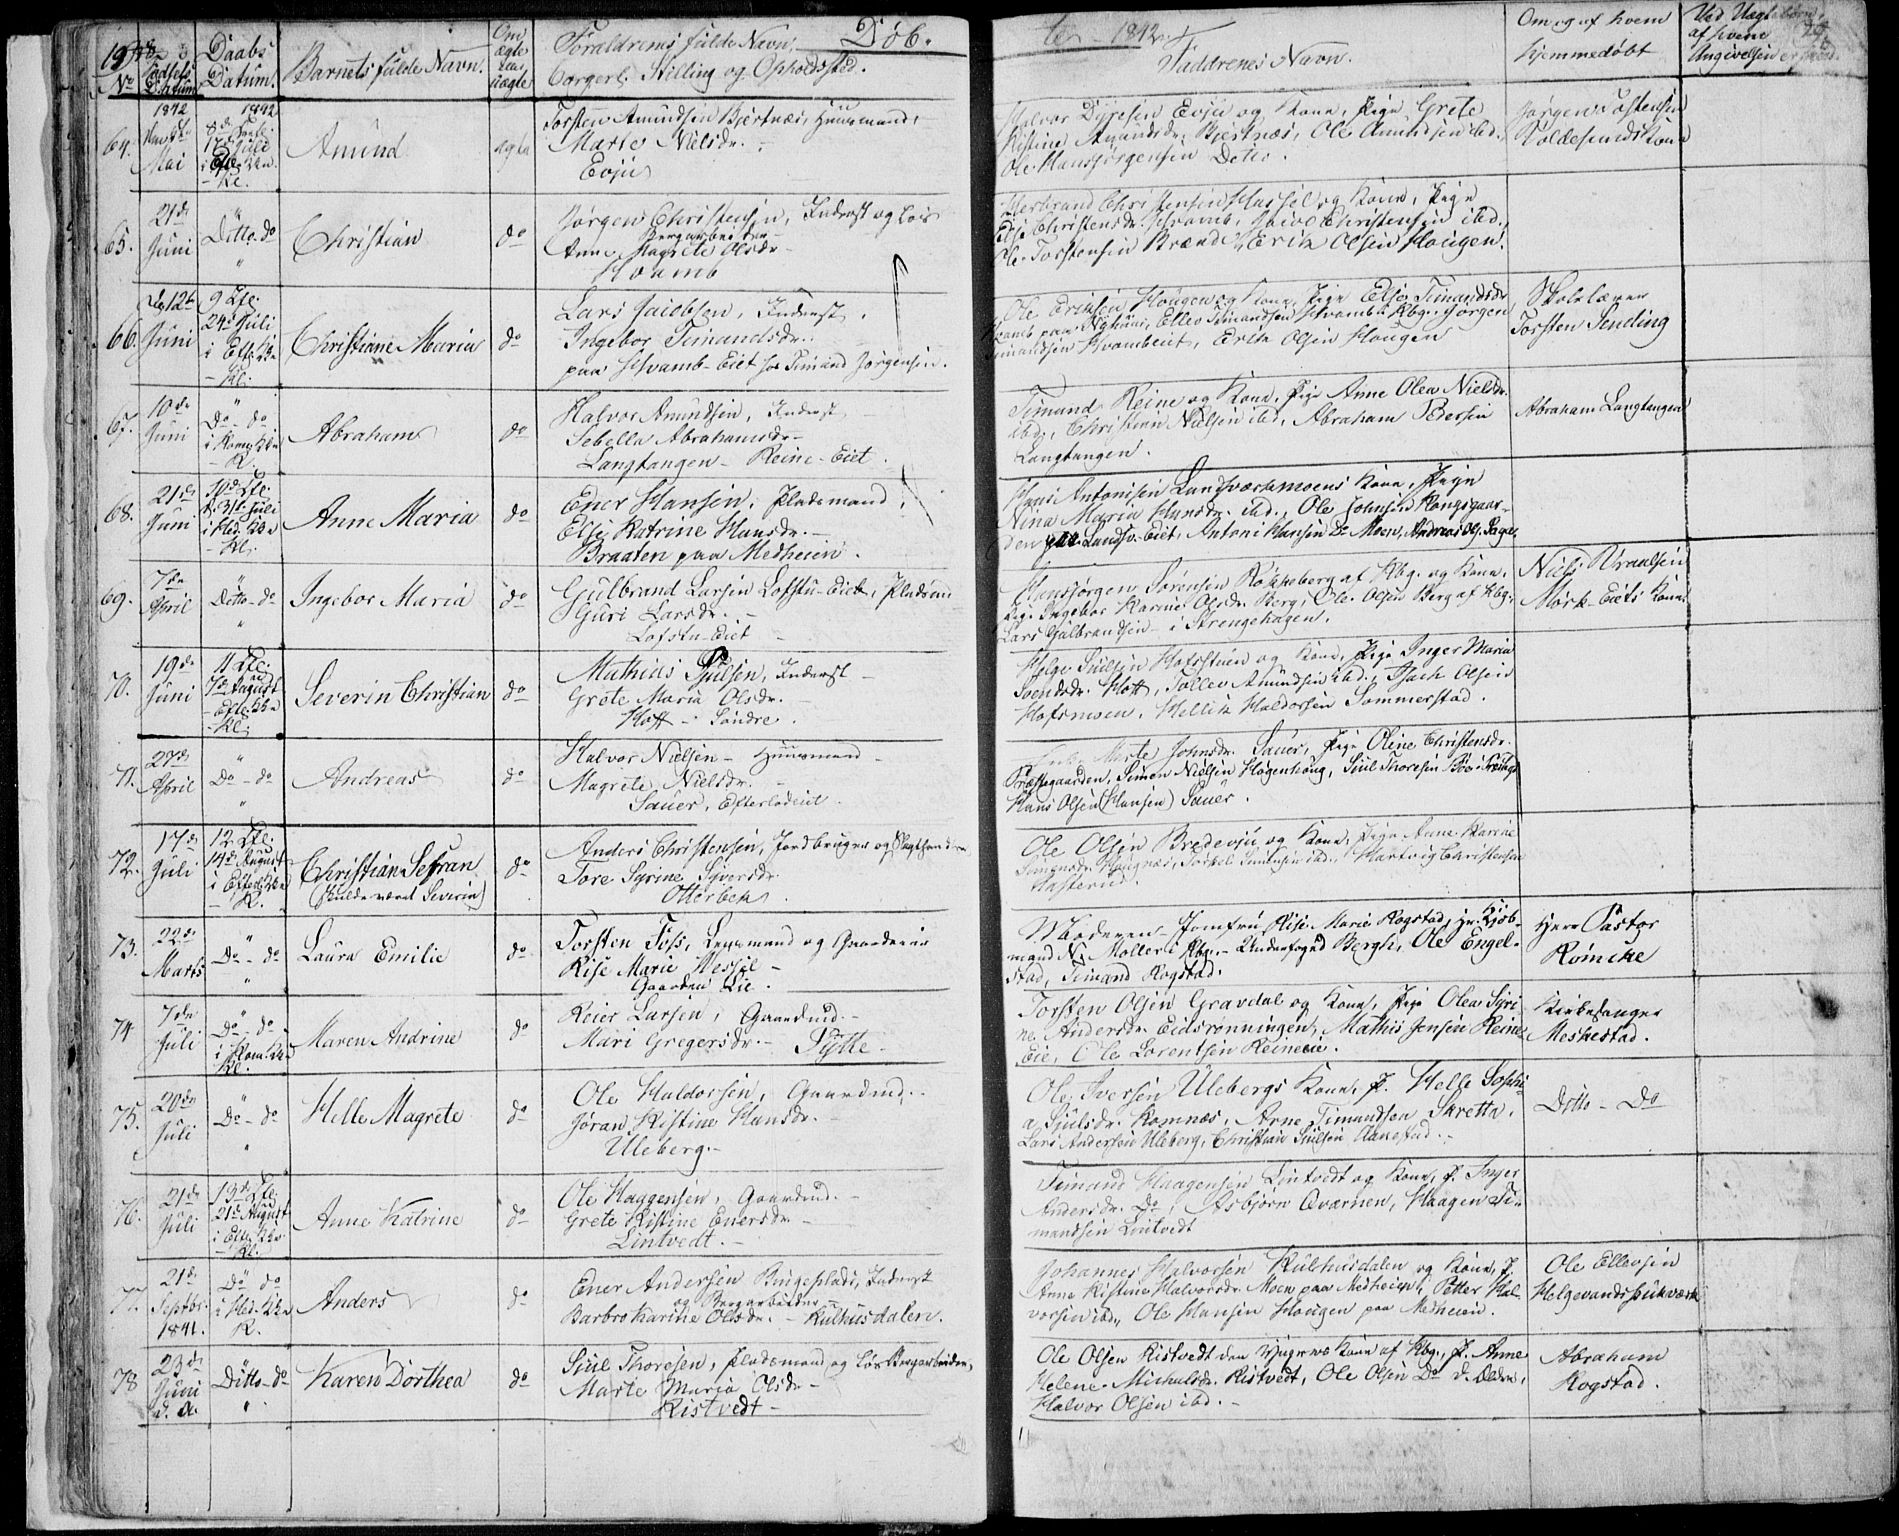 Døb-
1842
No
Fødsels Datum
Daabs Datum.
Barnets fulde Navn.
Om ægte eller uægte
Forældrenes fulde Navn,
borgerl. Stilling og Opholdssted.
Faddrenes Navn.
Om og af hvem
hjemmedøbt
Ved Uægtebørn,
af hvem
Angivelsen er skeed.
64.
Mai
17de Juli
Amund
ægte
Torsten Amundsen Bjertnæs, Huusmand,
Marte Nielsdr. -
Evju
Halvor Dyresen Evju og Kone, Pige Grete
Kistine Amundsdr. Bjertnæs, Ole Amundsen ibd.,
Ole Hansjørgensen Ditto.
Jørgen Tostensen
Koldesunds Kone
65.
21de
Juni
Ditto-do
Christian
do
Jørgen Christensen, Inderst og Løs
Bergarbeider -
Anne Magrete Olsdr -
Hvamb
Herbrand Christensen Hassel og Kone, Pige
Else Christensdr. Hvamb, Jacob Christensen ibd.,
Ole Torstensen Brænd, Erik Olsen Hougen.
66.
12te
Juni
9 Tre.
24de Juli
i Efte. Kke
- Kl.
Christiane Maria
do
Lars Jacobsen, Inderst.
Ingebor Timandsdr.
paa Hvamb-Eiet hos Timand Jørgensen.
Ole Eriksen Hougen og Kone, Pige Else Timandsdr.
Hvamb paa Nyhuus, Ellev Timandsen Hvamb a Kbg., Jørgen
Timandsen Hvambeiet, Erik Olsen Hougen
Skolelærer
Torsten Sending
67.
10de
Juni
Do-do
i Kom. Kke
- K.
Abraham
do
Halvor Amundsen, Inderst
Sebella Abrahamsdr -
Langtangen - Reine-Eiet.
Timand Reine og Kone, Pige Anne Olea Nielsdr.
ibd., Christian Nielsen ibd., Abraham Pedersen
Langtangen.
Abraham Langtangen
68.
21de
Juni
10de Tre.
d. 31te Juli
i Hed. Kke
- Kl.
Anne Maria
do
Ener Hansen, Pladsmand.
Else Katrine Hansdr. -
Braaten paa Medheien.
Hans Antonisen Landsværkmoens Kone, Pige
Nina Maria Hansdr. ibd., Ole Johnsen Kongsgaar-
den paa Landsv.-Eiet, Antoni Hansen Do Moen, Andreas Ols. Sagen.
69.
7de
April
Ditto-do
Ingebor Maria
do
Gulbrand Larsen Lofstu-Eiet, Pladsm
Guri Larsdr. -
Lofstu-Eiet -
Hansjørgen Sørensen Kopperberg af Kbg. og Kone,
Pige Ingebor Karine Olsdr. Berg, Ole Olsen Berg af Kbg.
Lars Gulbrandsen - i Strengehagen.
Niels Vraalsen
Mørk-Eiets Kone
70.
19de
Juni
11 Tre.
7de August
- Efte. Kke
- Kl.
Severin Christian
do
Mathias Sjulsen, Inderst -
Grete Maria Olsdr. -
Hoff - Søndre.
Helge Sjulsen Hofsstuen og Kone, Pige Inger Maria
Svendsdr. Hoff, Tollev Amundsen ibd., Isach Olsen
Hofsmoen, Kittil Haldorsen Sommerstad.
71.
27de
April
Do-do
Andreas
do
Halvor Nielsen - Huusmand -
Magrete Nielsdr. -
Sauer, Efterlodeiet.
Marte Johnsdr. Sauer, Pige Oline Christensdr.
Præstegaarden, Simen Nielsen Høgenhoug, Sjul Thoresen Bøe
Hans Olsen (Hansen) Sauer.
72.
17de
Juli
12 Tre.
14de August
i Efte. Kke
- K.
Christian Sefran
(skulde været Severin)
do
Anders Christensen, Jordbruger og
Tore Syrine Syversdr
Otterbek
Ole Olsen Bredevju og Kone, Pige Anne Karine
Simensdr. Haugnæs, Torkel Simensen ibd., Hartvig Christensen
Hasterud.
73.
22de
Marts
Do-do
Laura Emilie
do
Torsten Foss, Lensmand og Gaardeier
Kise Marie Hessel -
Gaarden Lie.
Moderen - Jomfru Kise Marie Kogstad, Hr. Kjøb-
mand N. Møller i Kbg. - Underfoged Bergh, Ole Engel-
stad, Timand Kogstad.
Herr Pastor
Rømcke
74
7de
Juli
Do-do
i Kom. Kke
Kl.
Maren Andrine
do
Reier Larsen, Gaardmd. -
Mari Gregersdr. - Pytte -
Torsten Olsen Gravdal og Kone, Pige Olea Syri-
ne Andersdr. Eidsrønningen, Mathis Jensen Reine-
Eie, Ole Lorentsen Reineeie.
Kirkesanger
Meskestad.
75.
20de
Juli
Do-do
Helle Magrete
do
Ole Haldorsen, Gaardmd. -
Jøran Kistine Hansdr. -
Uleberg. -
Ole Iversen Ulebergs Kone, P. Helle Sophi-
a Sjulsdr. Komnæs, Arne Timandsen Skretta,
Lars Andersen Uleberg, Christian Sjulsen Aanestad. -
Ditto - Do
76.
21de
Juli
13de Tre.
21de August
i Efte. Kke
- Kl.
Anne Katrine
do
Ole Haagensen, Gaardmd. -
Grete Kistine Enersdr -
Lintvedt. -
Timand Haagensen Lintvedt og Kone, P. Inger
Andersdr. Do, Asbjørn Qværnen, Haagen Ti-
mandsen Lintvedt
77.
21de
Septbr.
1841.
Do do
i Hed. Kke
K.
Anders
do
Ener Andersen Ringeplads, Inderst
og Bergarbeider -
Barbro Karine Olsdr. - Kulhusdalen.
Johannes Halvorsen Kulhusdalen og Kone, P.
Anne Kistine Halvorsdr. Moen paa Medheien, Petter Hal-
vorsen ibd., Ole Hansen Hougen paa Medheien.
Ole Ellevsen
Helgevandsbrukværk
78
23de
Juni
d. A.
Ditto-do
Karen Dorthea
do
Sjul Thoresen, Pladsmand og Løs Bergarbeider,
Marte Maria Olsdr -
Kistvedt -
Ole Olsen Kistvedt den Yngres Kone af Kbg., P. Anne
Helene Michelsdr. Kistvedt, Ole Olsen Do d. Ældre,
Halvor Olsen ibd. -
Abraham
Kogstad.